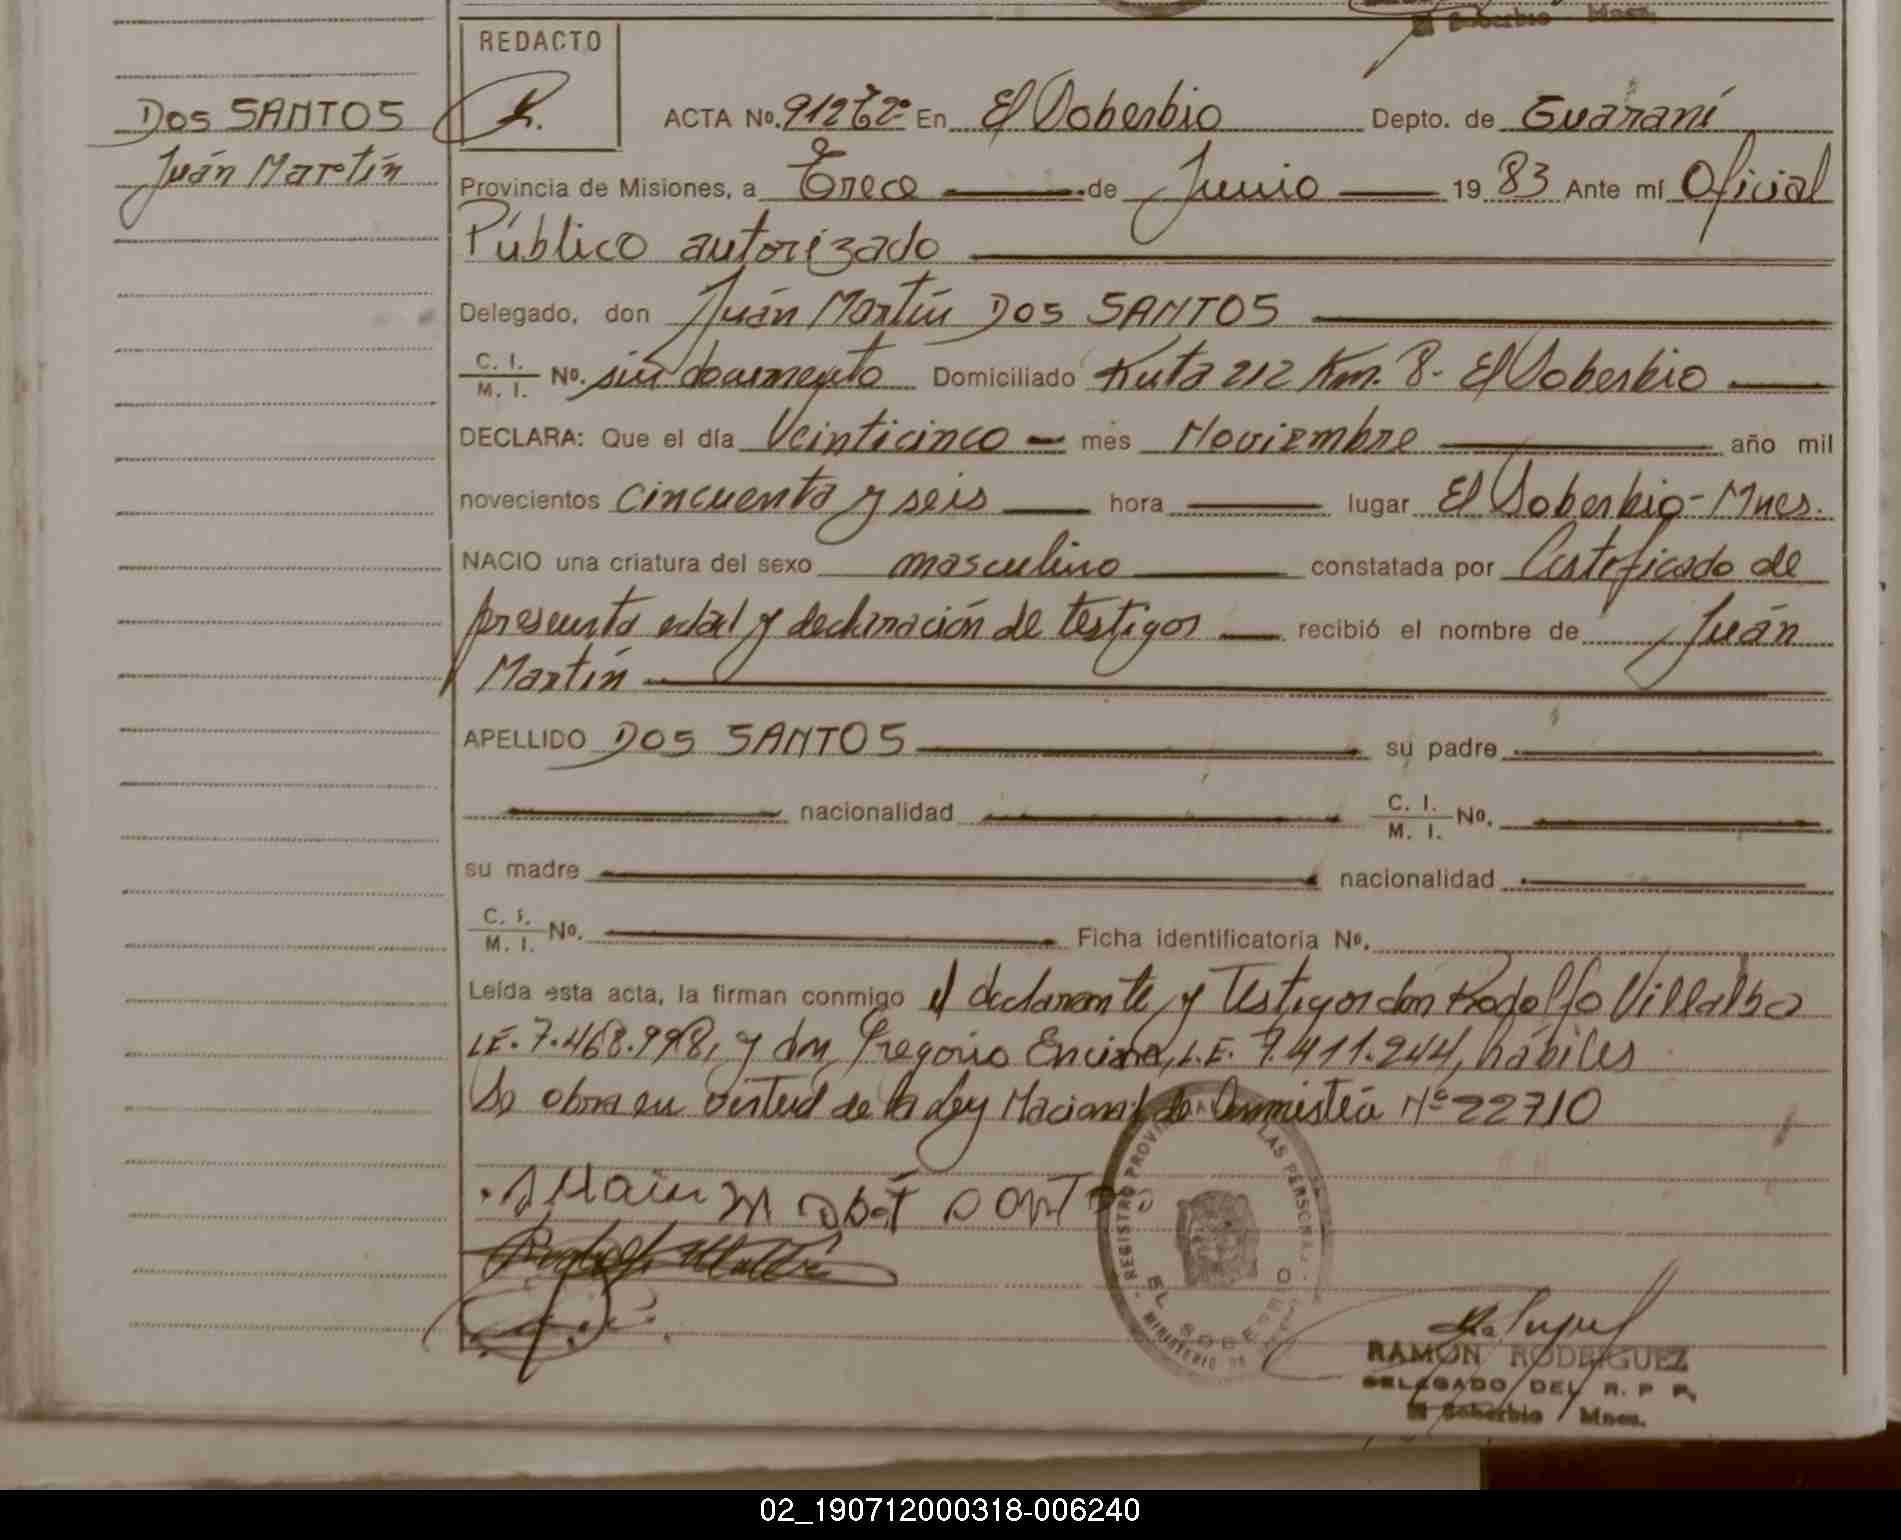 El Soberbio Mnes.
REDACTO
DOS SANTOS
Juán Martín
ACTA No. 912 Tº 2º En El Soberbio Depto. de Guaraní
Provincia de Misiones, a Trece de Junio 19 83 Ante mí Oficial
Público autorizado
Delegado, don Juán Martín DOS SANTOS
C. I.
M. I. No. sin documento Domiciliado Ruta 212 Km. 8- El Soberbio
DECLARA: Que el día Veinticinco mes Noviembre año mil
novecientos cincuenta y seis hora lugar El Soberbio - Mnes.
NACIO una criatura del sexo masculino constatada por Certificado de
presunta edad y declaración de testigos recibió el nombre de Juán
Martín
APELLIDO DOS SANTOS su padre
nacionalidad C. I.
M. I. No.
su madre nacionalidad
C. I.
M. I. No. Ficha identificatoria No.
Leída esta acta, la firman conmigo el declarante y Testigos don Rodolfo Villalba
L.E. 7.468.998, y don Gregorio Encina, L.E. 7.411.244, hábiles
Se obra en virtud de la Ley Nacional de Amnistía Nº 22710
REGISTRO PROVINCIAL DE LAS PERSONAS
EL SOBERBIO
MINISTERIO DE
RAMON RODRIGUEZ
DELEGADO DEL R. P. P.
El Soberbio Mnes.
02_190712000318-006240